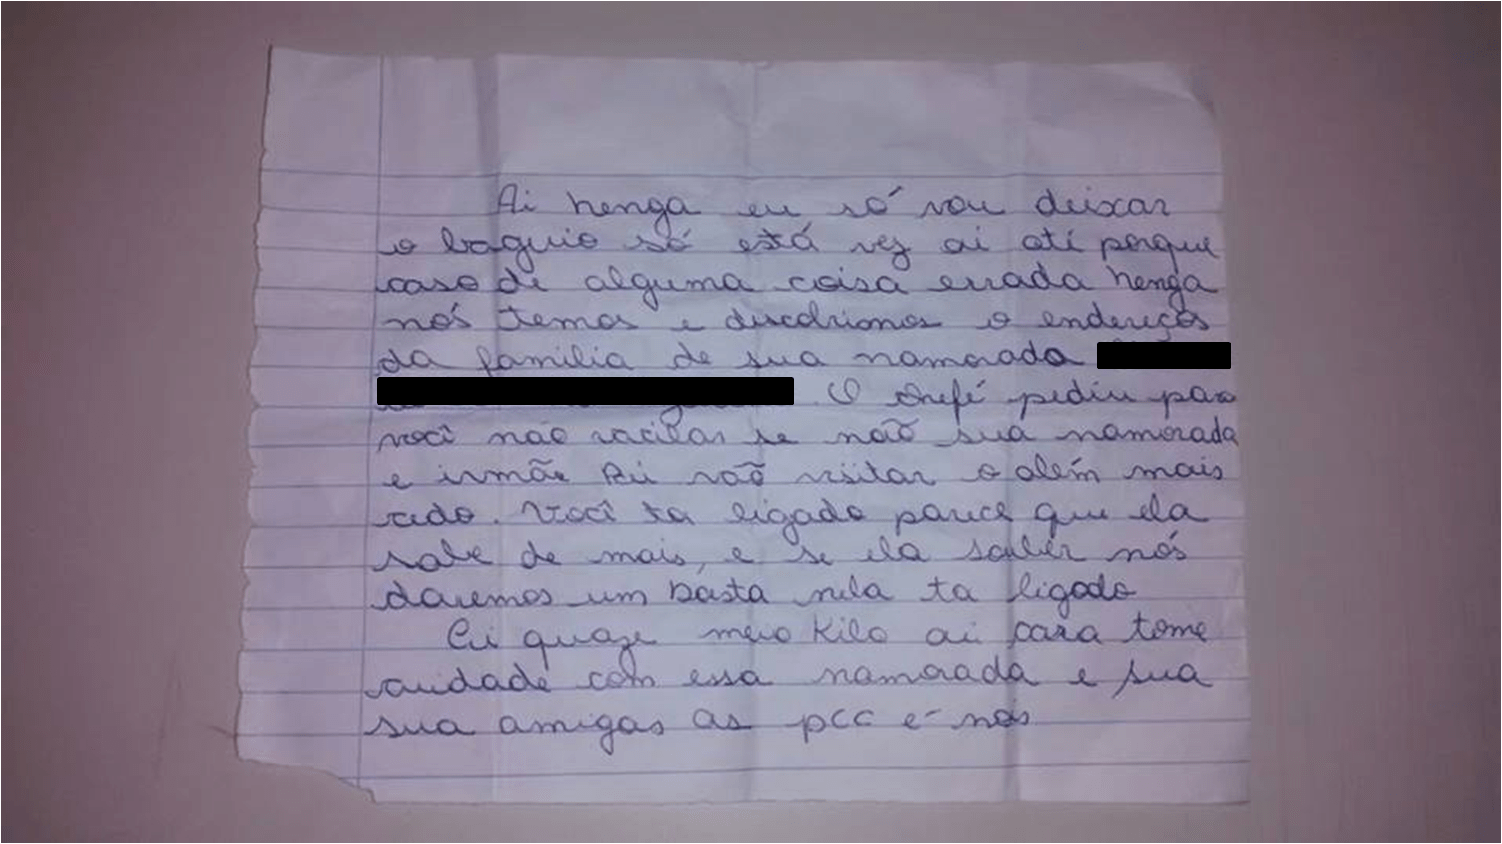 Ai henga eu só vou deixar
o baguio só está vez ai ati porque
caso de alguma coisa errada henga
nós temos e discdrionos o endereços
da familia de sua namorada
O chefé pediu para
você não vacilar se não sua namorada
e irmão vão visitar o além mais
cedo. Você ta ligado parece que ela
sabe de mais, e se ela saber nós
daremos um basta nela ta ligado
Ei quaze meio kilo ai cara tome
cuidade com essa namorada e sua
sua amigas as pcc é nós